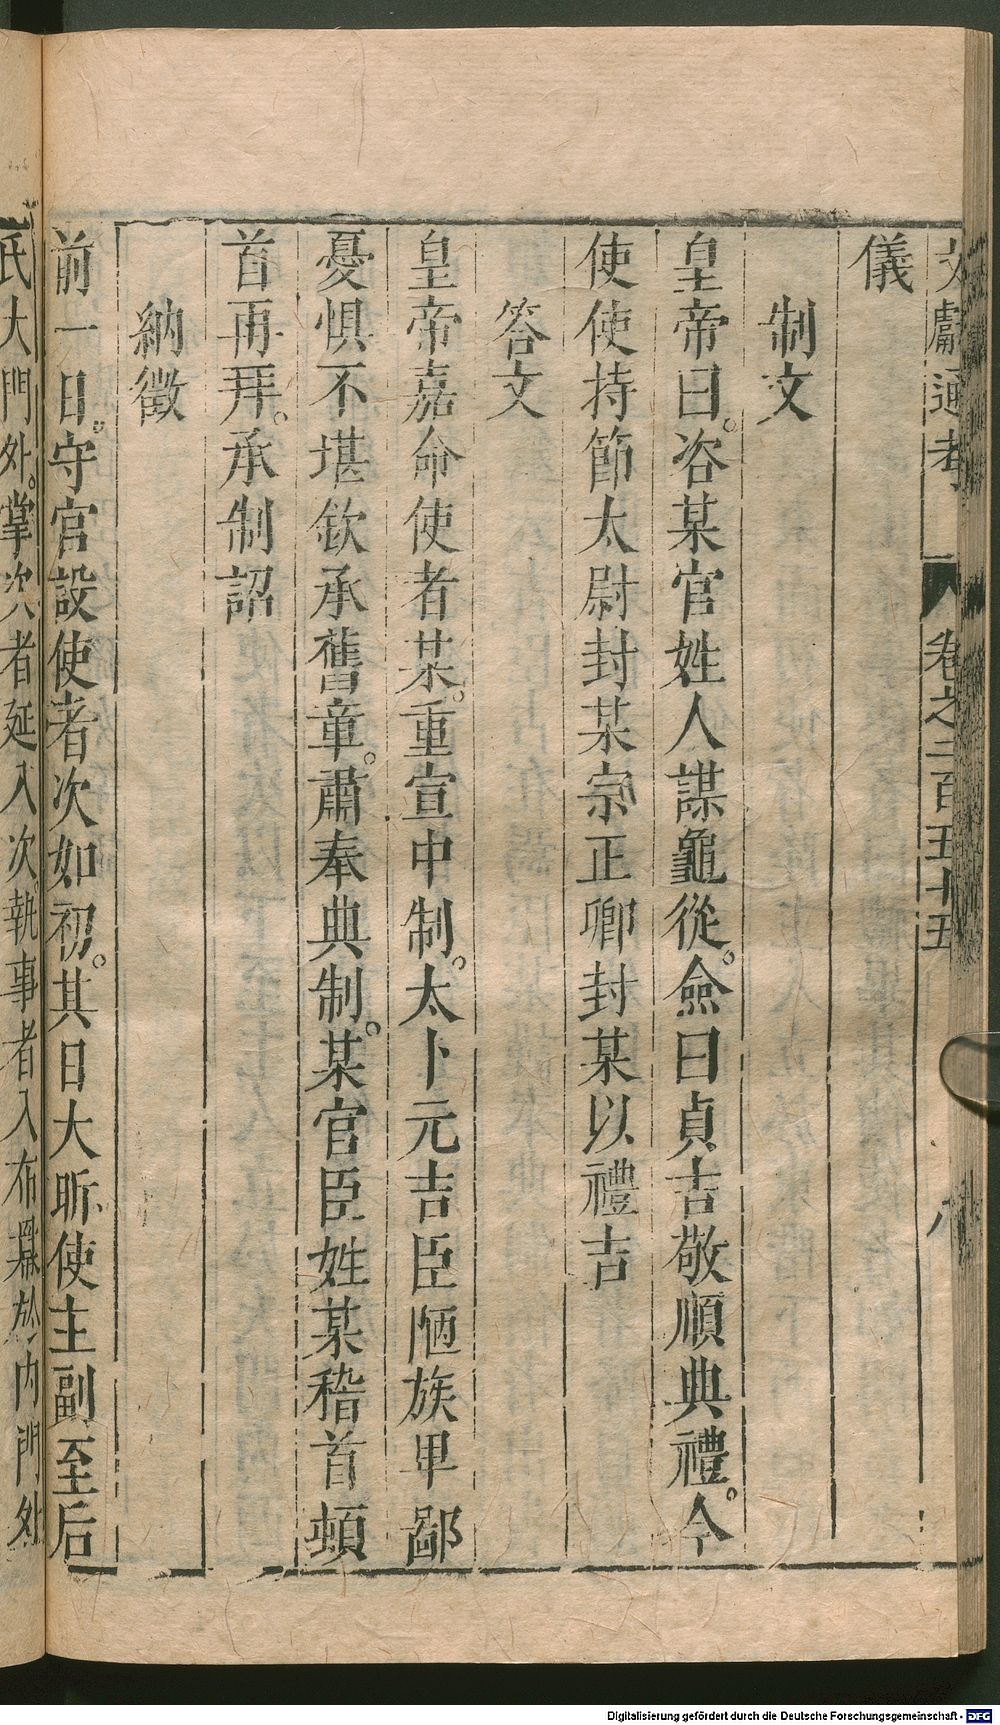 文獻通考 卷之二百五十五 八
儀
制文
皇帝曰。咨某官姓人謀龜從。僉曰貞吉敬順典禮。今
使使持節太尉封某宗正卿封某以禮吉
答文
皇帝嘉命使者某。重宣中制。太卜元吉臣陋族卑鄙
憂惧不堪欽承舊章。肅奉典制。某官臣姓某稽首頓
首再拜。承制詔
納徵
前一日。守宮設使者次如初。其日大昕使主副至后
氏大門外。掌次者延入次。執事者入布羃於內門外
Digitalisierung gefördert durch die Deutsche Forschungsgemeinschaft - DFG